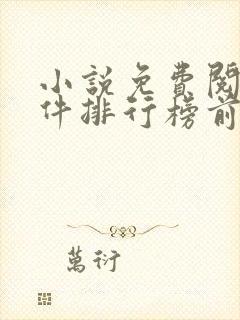 小説免費閱
件排行榜前
萬衍